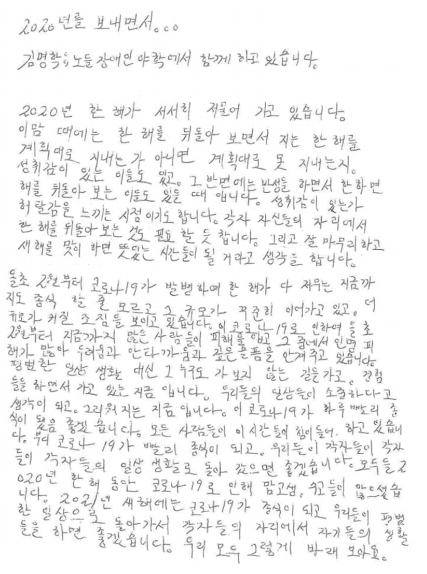 2020년를 보내면서...
김명학:노들장애인야학에서 함께 하고 있습니다.
2020년 한 해가 서서히 저물어 가고 있습니다.
이맘 때에는 한 해를 뒤돌아 보면서 지는 한 해를
계획대로 지내는가 아니면 계획대로 못 지내는지.
성취감이 있는 이들도 있고. 그 반면에는 반성들을 하면서 한하면
해를 뒤돌아 보는 이들도 있을 때 입니다. 성취감이 있는가
허탈감을 느끼는 시점이기도합니다. 각자 자신들의 자리에서
한 해를 뒤돌아 보는 것도 필요 할 듯 합니다. 그리고 잘 마무리하고
새해를 맞이 하면 뜻있는 시간들이 될 거라고 생각을 합니다.
올초 2월부터 코로나19가 발병하여 한 해가 다 저무는 지금까
지도 종식 할 줄 모르고 그 규모가 꾸준히 이어가고 있고. 더
규모가 커질 조짐을 보이고 있습니다. 이 코로나19로 인하여 올초
2월부터 지금까지 많은 사람들이 피해를 입고 그 중에서 인명 피
해가 많아 두려움과 안타까움과 깊은 슬픔을 안겨주고 있습니다.
평범한 일상 생활 대신 그 누구도 가 보지 않는 길을 가고. 경험
들을 하면서 가고 있는 지금 입니다. 우리들의 일상들이 소중하다고
생각이 되고. 그리워 지는 지금 입니다. 이 코로나19가 하루 빨리 종
식이 됐음 좋겠습니다. 모든 사람들이 이 시간들이 힘이들어. 하고 있습니
다. 우리 코로나19가 빨리 종식이 되고. 우리들이 각자들이 각자
들이 각자들의 일상 생활로 돌아 갔으면 좋겠습니다. 모두들 2
020년 한 해 동안 코로나19로 인해 맘고생. 수고들이 많으셨습
니다. 2021년 새해에는 코로나19가 종식이 되고 우리들이 평범
한 일상으로 돌아가서 각자들의 자리에서 자기들의 생활
들을 하면 좋겠습니다. 우리 모두 그렇게 바래 보아요.